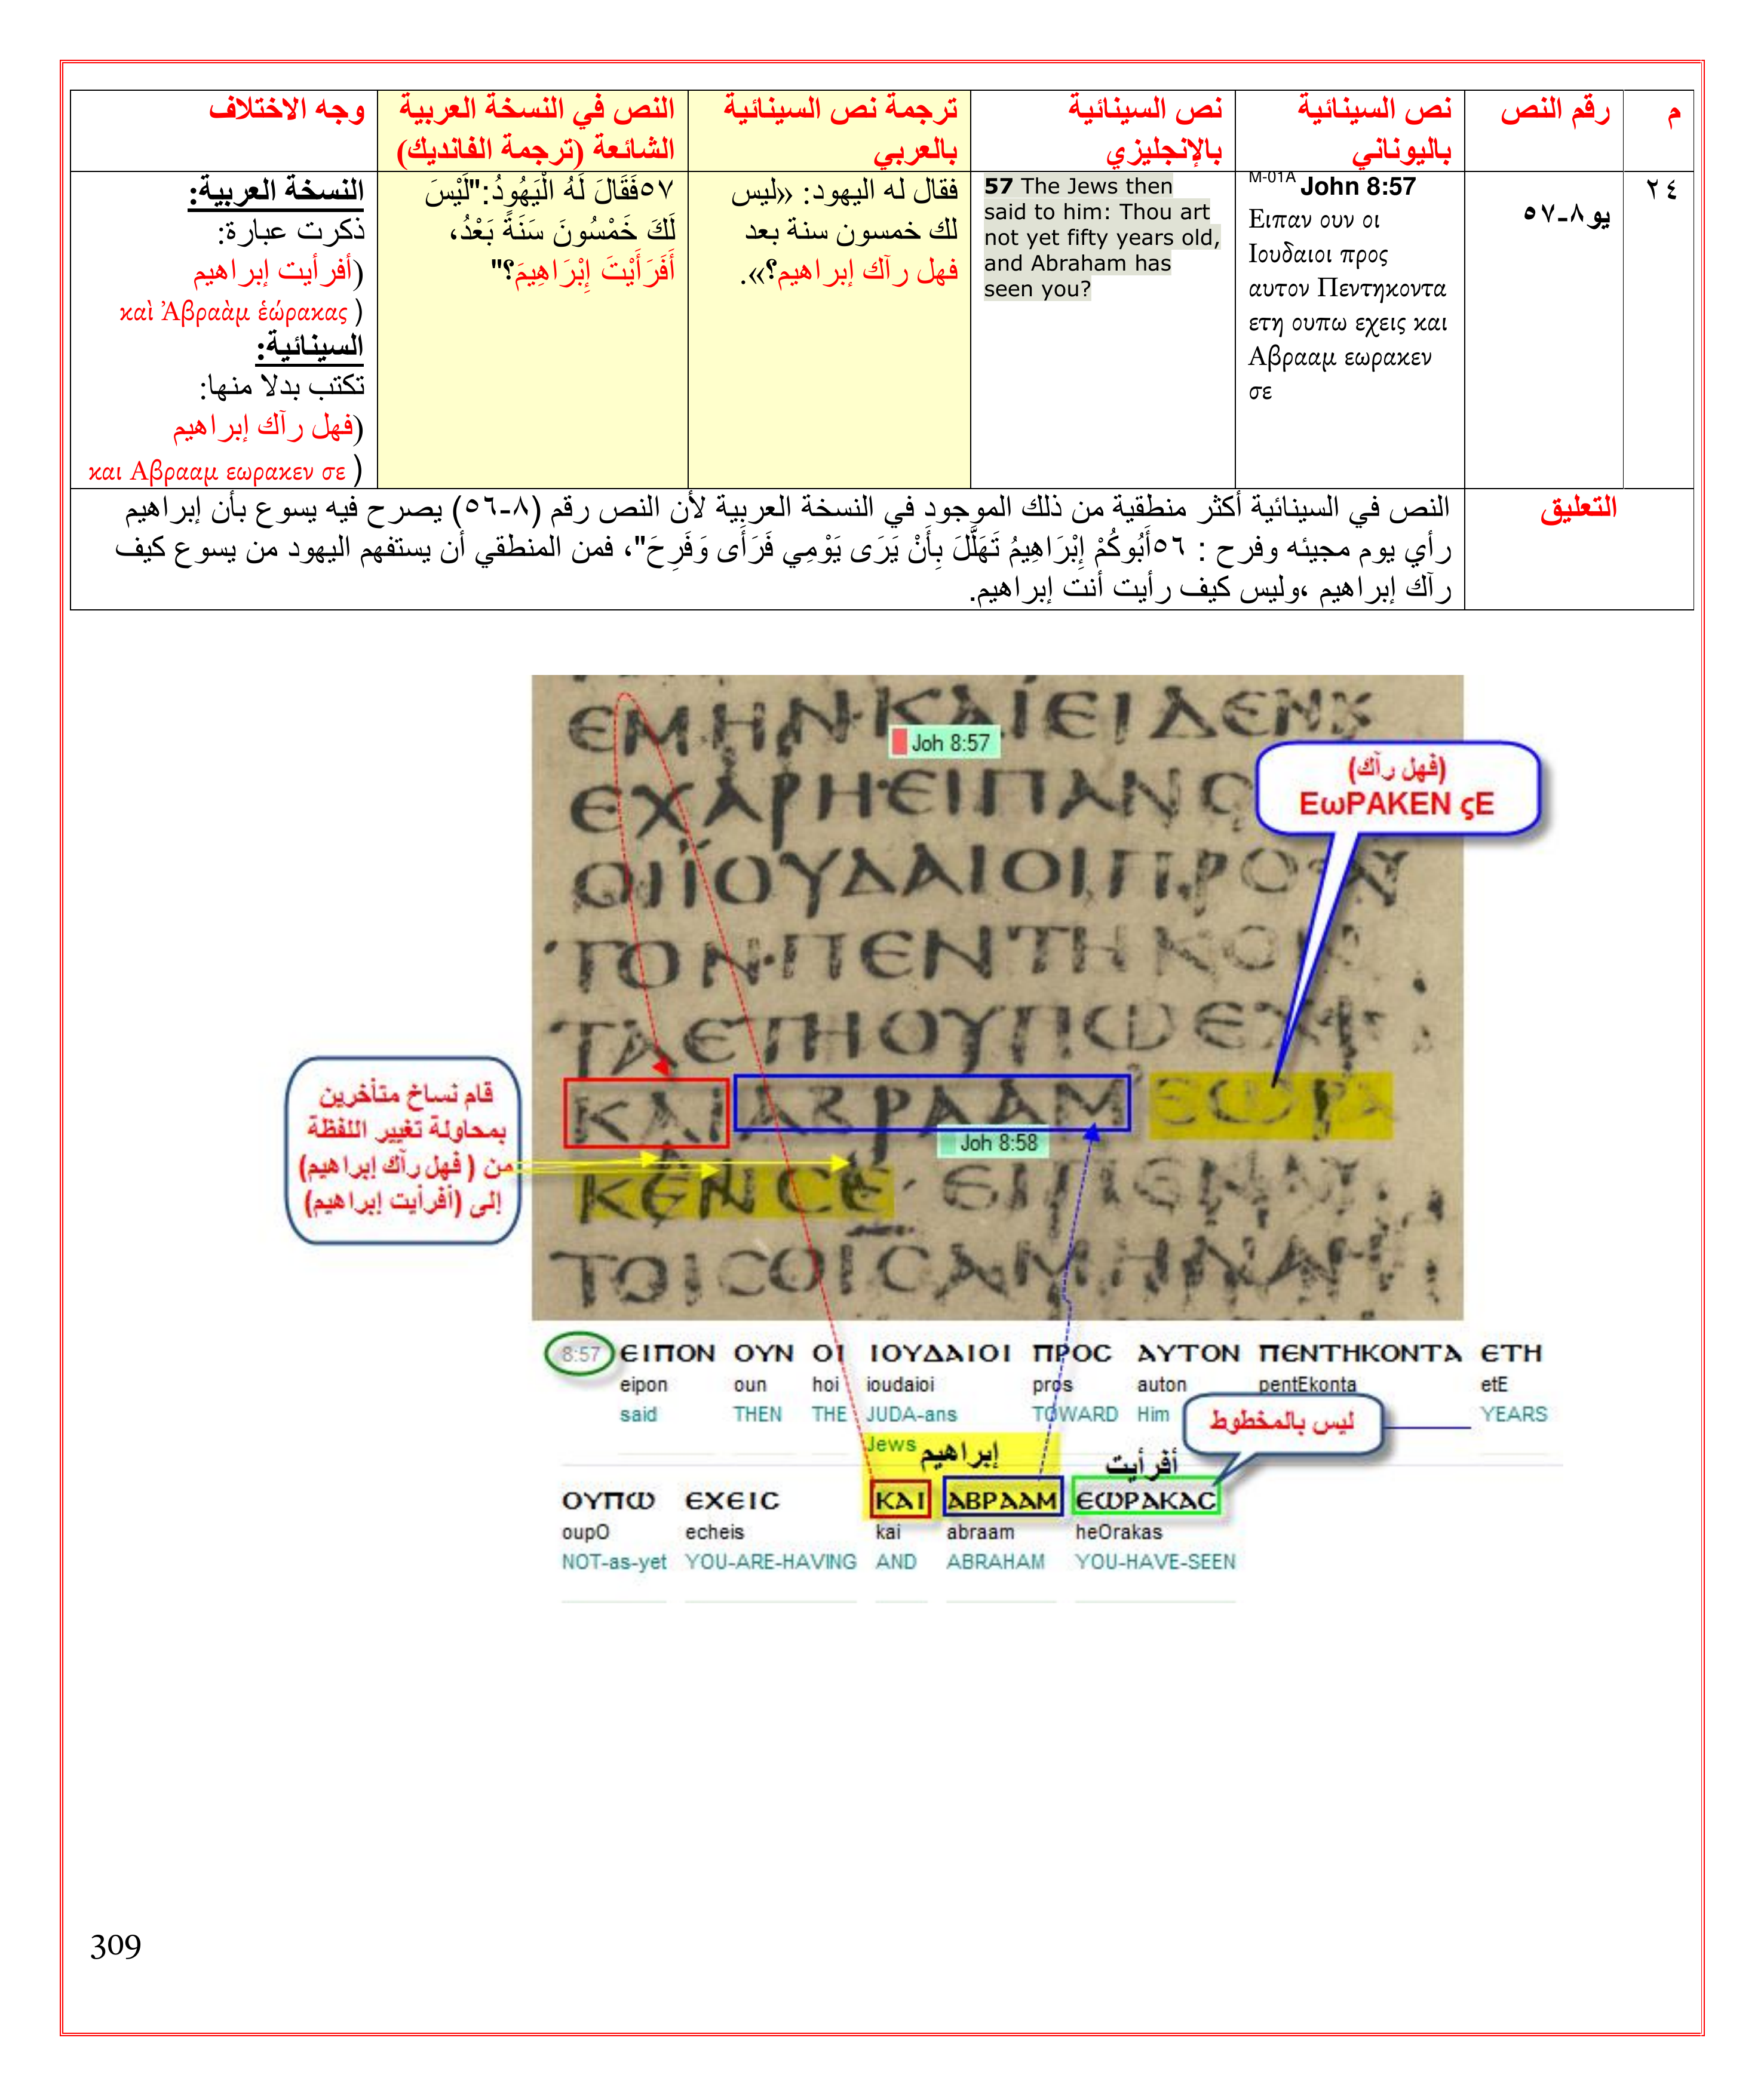 م
رقم النص
نص السينائية
باليوناني
نص السينائية
بالإنجليزي
ترجمة نص السينائية
بالعربي
النص في النسخة العربية
الشائعة (ترجمة الفانديك)
وجه الاختلاف
٢٤
يو٨-٥٧
M-01A John 8:57
Ειπαν ουν οι
Ιουδαιοι προς
αυτον Πεντηκοντα
ετη ουπω εχεις και
Αβρααμ εωρακεν
σε
57 The Jews then
said to him: Thou art
not yet fifty years old,
and Abraham has
seen you?
فقال له اليهود: «ليس
لك خمسون سنة بعد
فهل رآك إبراهيم؟».
٥٧فَقَالَ لَهُ الْيَهُودُ:"لَيْسَ
لَكَ خَمْسُونَ سَنَةً بَعْدُ،
أَفَرَأَيْتَ إِبْرَاهِيمَ؟"
النسخة العربية:
ذكرت عبارة:
(أفرأيت إبراهيم
καὶ Ἀβραὰμ ἑώρακας )
السينائية:
تكتب بدلا منها:
(فهل رآك إبراهيم
και Αβρααμ εωρακεν σε )
التعليق
النص في السينائية أكثر منطقية من ذلك الموجود في النسخة العربية لأن النص رقم (٨-٥٦) يصرح فيه يسوع بأن إبراهيم
رأي يوم مجيئه وفرح : ٥٦أَبُوكُمْ إِبْرَاهِيمُ تَهَلَّلَ بِأَنْ يَرَى يَوْمِي فَرَأَى وَفَرِحَ"، فمن المنطقي أن يستفهم اليهود من يسوع كيف
رآك إبراهيم ،وليس كيف رأيت أنت إبراهيم.
ΕΜΗΝ·ΚΑΙΕΙΔΕΝΚ
Joh 8:57
ΕΧΑΡΗ·ΕΙΠΑΝΟ
ΟΙΪΟΥΔΑΙΟΙΠΡΟ ΑΥ
ΤΟΝ·ΠΕΝΤΗΚΟΝ
ΤΑΕΤΗΟΥΠΩΕΧΙ
ΚΑΙΑΒΡΑΑΜ ΕΩΡΑ
Joh 8:58
ΚΕΝCΕ· ΕΙΠΕΝΑΥ
ΤΟΙCΟΙCΑΜΗΝΑΜ
(فهل رآك)
ΕωΡΑΚΕΝ ςΕ
قام نساخ متأخرين
بمحاولة تغيير اللفظة
من ( فهل رآك إبراهيم)
إلى (أفرأيت إبراهيم)
8:57 ΕΙΠΟΝ ΟΥΝ ΟΙ ΙΟΥΔΑΙΟΙ ΠΡΟC ΑΥΤΟΝ ΠΕΝΤΗΚΟΝΤΑ ΕΤΗ
eipon oun hoi ioudaioi pros auton pentEkonta etE
said THEN THE JUDA-ans TOWARD Him YEARS
Jews
ليس بالمخطوط
إبراهيم
أفرأيت
ΟΥΠΩ ΕΧΕΙC ΚΑΙ ΑΒΡΑΑΜ ΕΩΡΑΚΑC
oupO echeis kai abraam heOrakas
NOT-as-yet YOU-ARE-HAVING AND ABRAHAM YOU-HAVE-SEEN
309